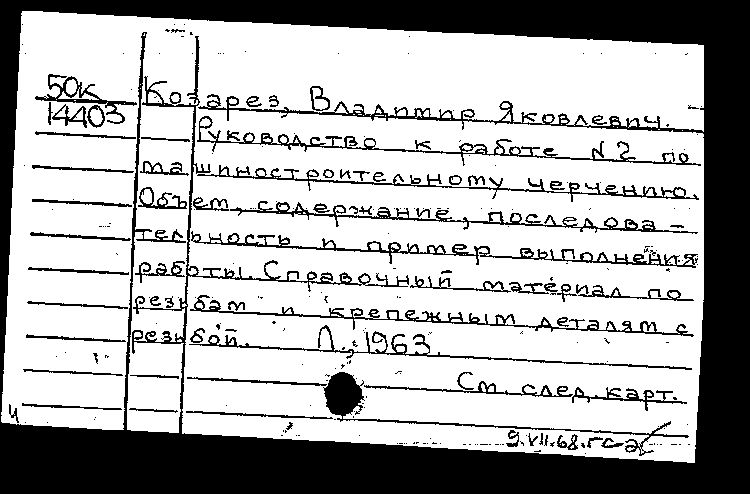 50к
14403
Козарез, Владимир Яковлевич.
Руководство к работе №2 по
машиностроительному черчению.
Объем, содержание, последова-
тельность и пример выполнения
работы. Справочный материал по
резьбам и крепежным деталям с
резьбой. Л., 1963.
См. след. карт.
9.VII.68.